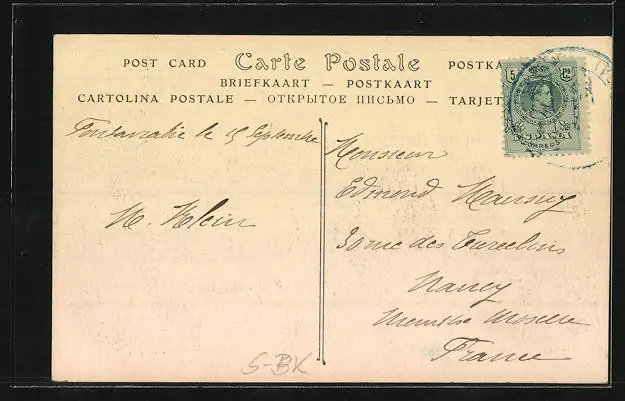 POST CARD Carte Postale POSTKA
BRIEFKAART — POSTKAART
CARTOLINA POSTALE — ОТКРЫТОЕ ПИСЬМО — TARJET
5 Cs
CORREOS
Fontarabie le 15 Septembre
M. Klein
Monsieur
Edmond Mansuy
30 rue des Tiercelins
Nancy
Meurthe Moselle
France
S-BK